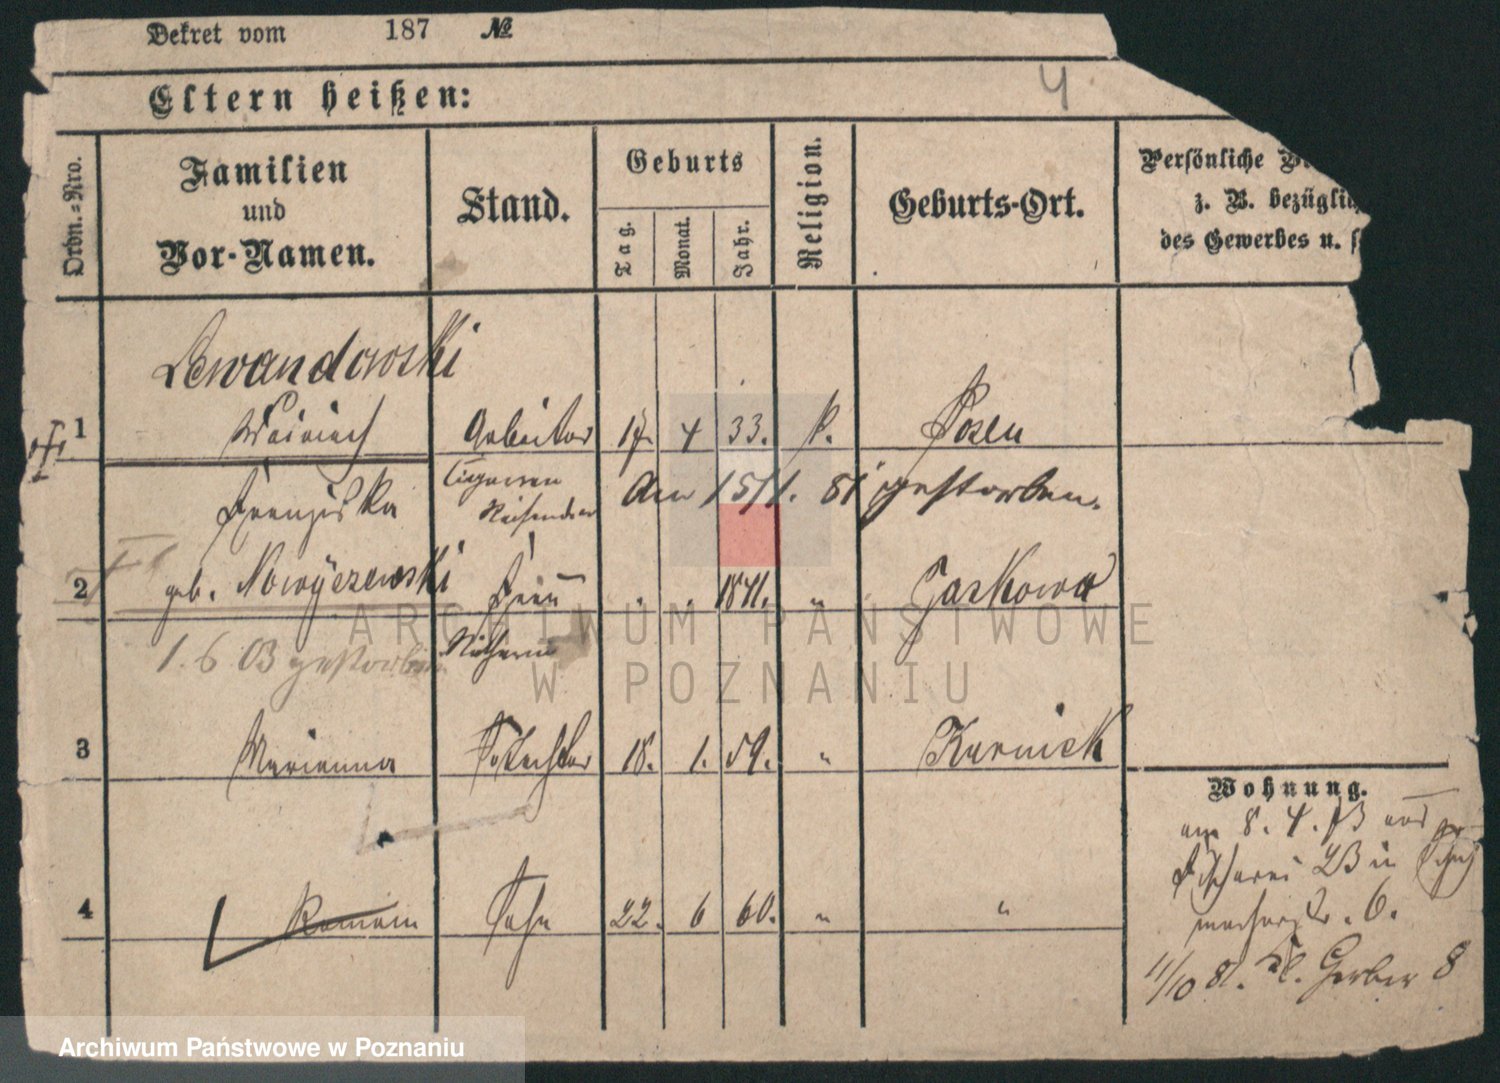 Dekret vom 187 №
4
Eltern heißen:
Ordn.=Nro.
Familien
und
Vor-Namen.
Stand.
Geburts
Tag.
Monat.
Jahr.
Religion.
Geburts-Ort.
Persönliche
z. B. bezüglich
des Gewerbes u.
Lewandowski
1 Arbeiter 17. 4 33. k. Posen
Franziska Cigarren Am 15/1. 81 gestorben.
2 geb. Frau 1841. „
1. 6. 03 gestorben
3 Marianna Tochter 18. 1. 59. „ Kurnick
Wohnung.
am 8. 4. 73
Fischerei 23 in
4 Roman Sohn 22. 6 60. „ „
6.
11/10 81. Kl. Gerber 8
ARCHIWUM PAŃSTWOWE
W POZNANIU
Archiwum Państwowe w Poznaniu